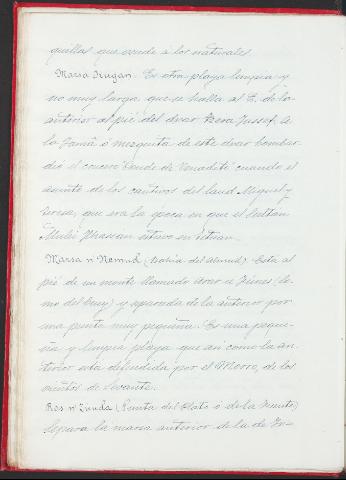 quillas que vende á los naturales.
Marsa Arugan. Es otra playa limpia y
no muy larga que se halla al E. de la
anterior al pié del duar Beni Jussef. A
la Jamâ o mezquita de este duar bombar
deó el crucero Conde de Venadito cuando el
asunto de los cautivos del laud Miguel y
Teresa, que era la época en que el Sultan
Mulei Hhassan estuvo en Tetuan.
Marsa n' (Bahía del ). Esta al
pié de un monte llamado Aror u Fúnes (Lo
mo del Buey) y separada de la anterior por
una punta muy pequeña. Es una peque-
ña y limpia playa que asi como la an-
terior esta defendida por el Morro, de los
vientos de Levante.
Ras n' Zuuda (Punta del Plato ó de la Fuente)
Separa la marsa anterior de la de Ir-